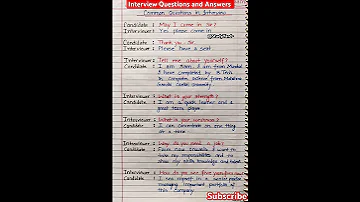 Interview Questions and Answers
Common Questions in Interview
Candidate : May I come in Sir?
Interviewer : Yes please come in.
Candidate : Thank you Sir
Interviewer : Please have a seat
Interviewer : Tell me about yourself?
Candidate : I am from Mumbai
I have completed my B.Tech
in Computer Science from
Central University
Interviewer : What is your strength?
Candidate : I am a quick learner and a
great team player
Interviewer : What is your weakness?
Candidate : I can concentrate on one thing
at a time
Interviewer : Why do you need a job?
Candidate : I want to
take my responsibilities and to
show my skills knowledge and talent
Interviewer : How do you see five years from now
Candidate : I see myself in a
managing important portfolio of
this Company
Subscribe